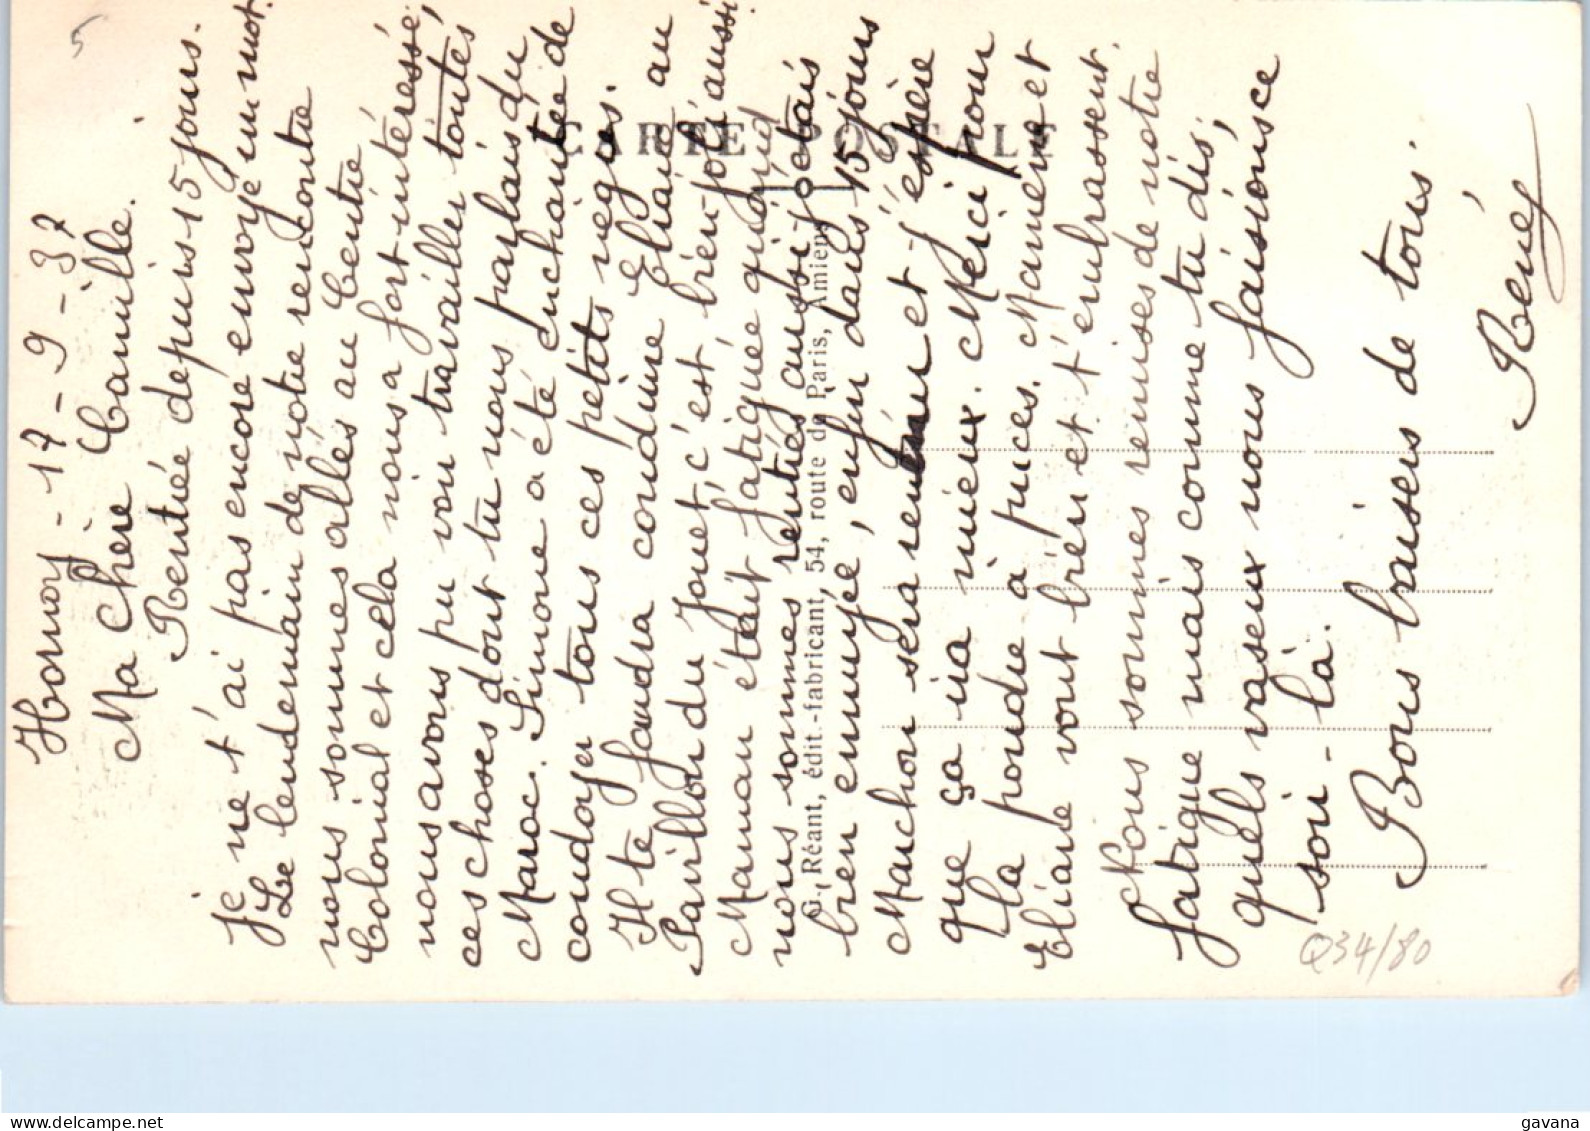 Hornoy - 17 - 9 - 37
Ma Chère Camille.
Rentrée depuis 15 jours.
je ne t'ai pas encore envoyé un mot.
Le lendemain de notre rencontre
nous sommes allés au Centre
Colonial et cela nous a fort intéressé,
nous avons pu voir travailler toutes
ces choses dont tu nous parlais du
Maroc. Simone a été enchantée de
coudoyer tous ces petits negros.
Il te faudra conduire Eliane au
Pavillon du Jouet, c'est bien joli aussi
Maman était fatiguée quand
nous sommes rentrés aussi j'étais
bien ennuyée, enfin dans 15 jours
Mauchon sera revenu et j'espère
que ça ira mieux. Merci pour
la poudre à puces. Marraine et
Eliane vont bien et t'embrassent.
Nous sommes remises de notre
fatigue mais comme tu dis,
quels vaseux nous faisions ce
soir-là.
Bons baisers de tous.
Renée
CARTE POSTALE
G. Réant, édit.-fabricant, 54, route de Paris, Amiens
5
Q34/80
delcampe.net
gavana